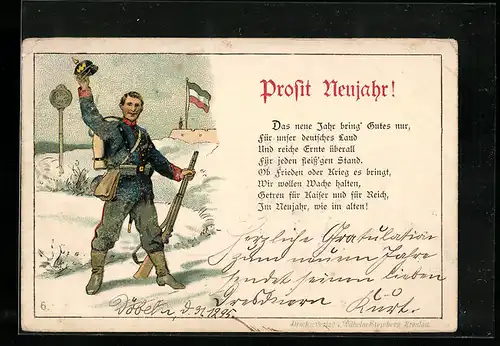 Prosit Neujahr!
Das neue Jahr bring' Gutes nur,
Für unser deutsches Land
Und reiche Ernte überall
Für jeden fleiß'gen Stand.
Ob Frieden oder Krieg es bringt,
Wir wollen Wache halten,
Getreu für Kaiser und für Reich,
Im Neujahr, wie im alten!
Herzliche Gratulation
zum neuen Jahre
sendet seinen lieben
Kurt.
6.
Döbeln, d. 31.12.95.